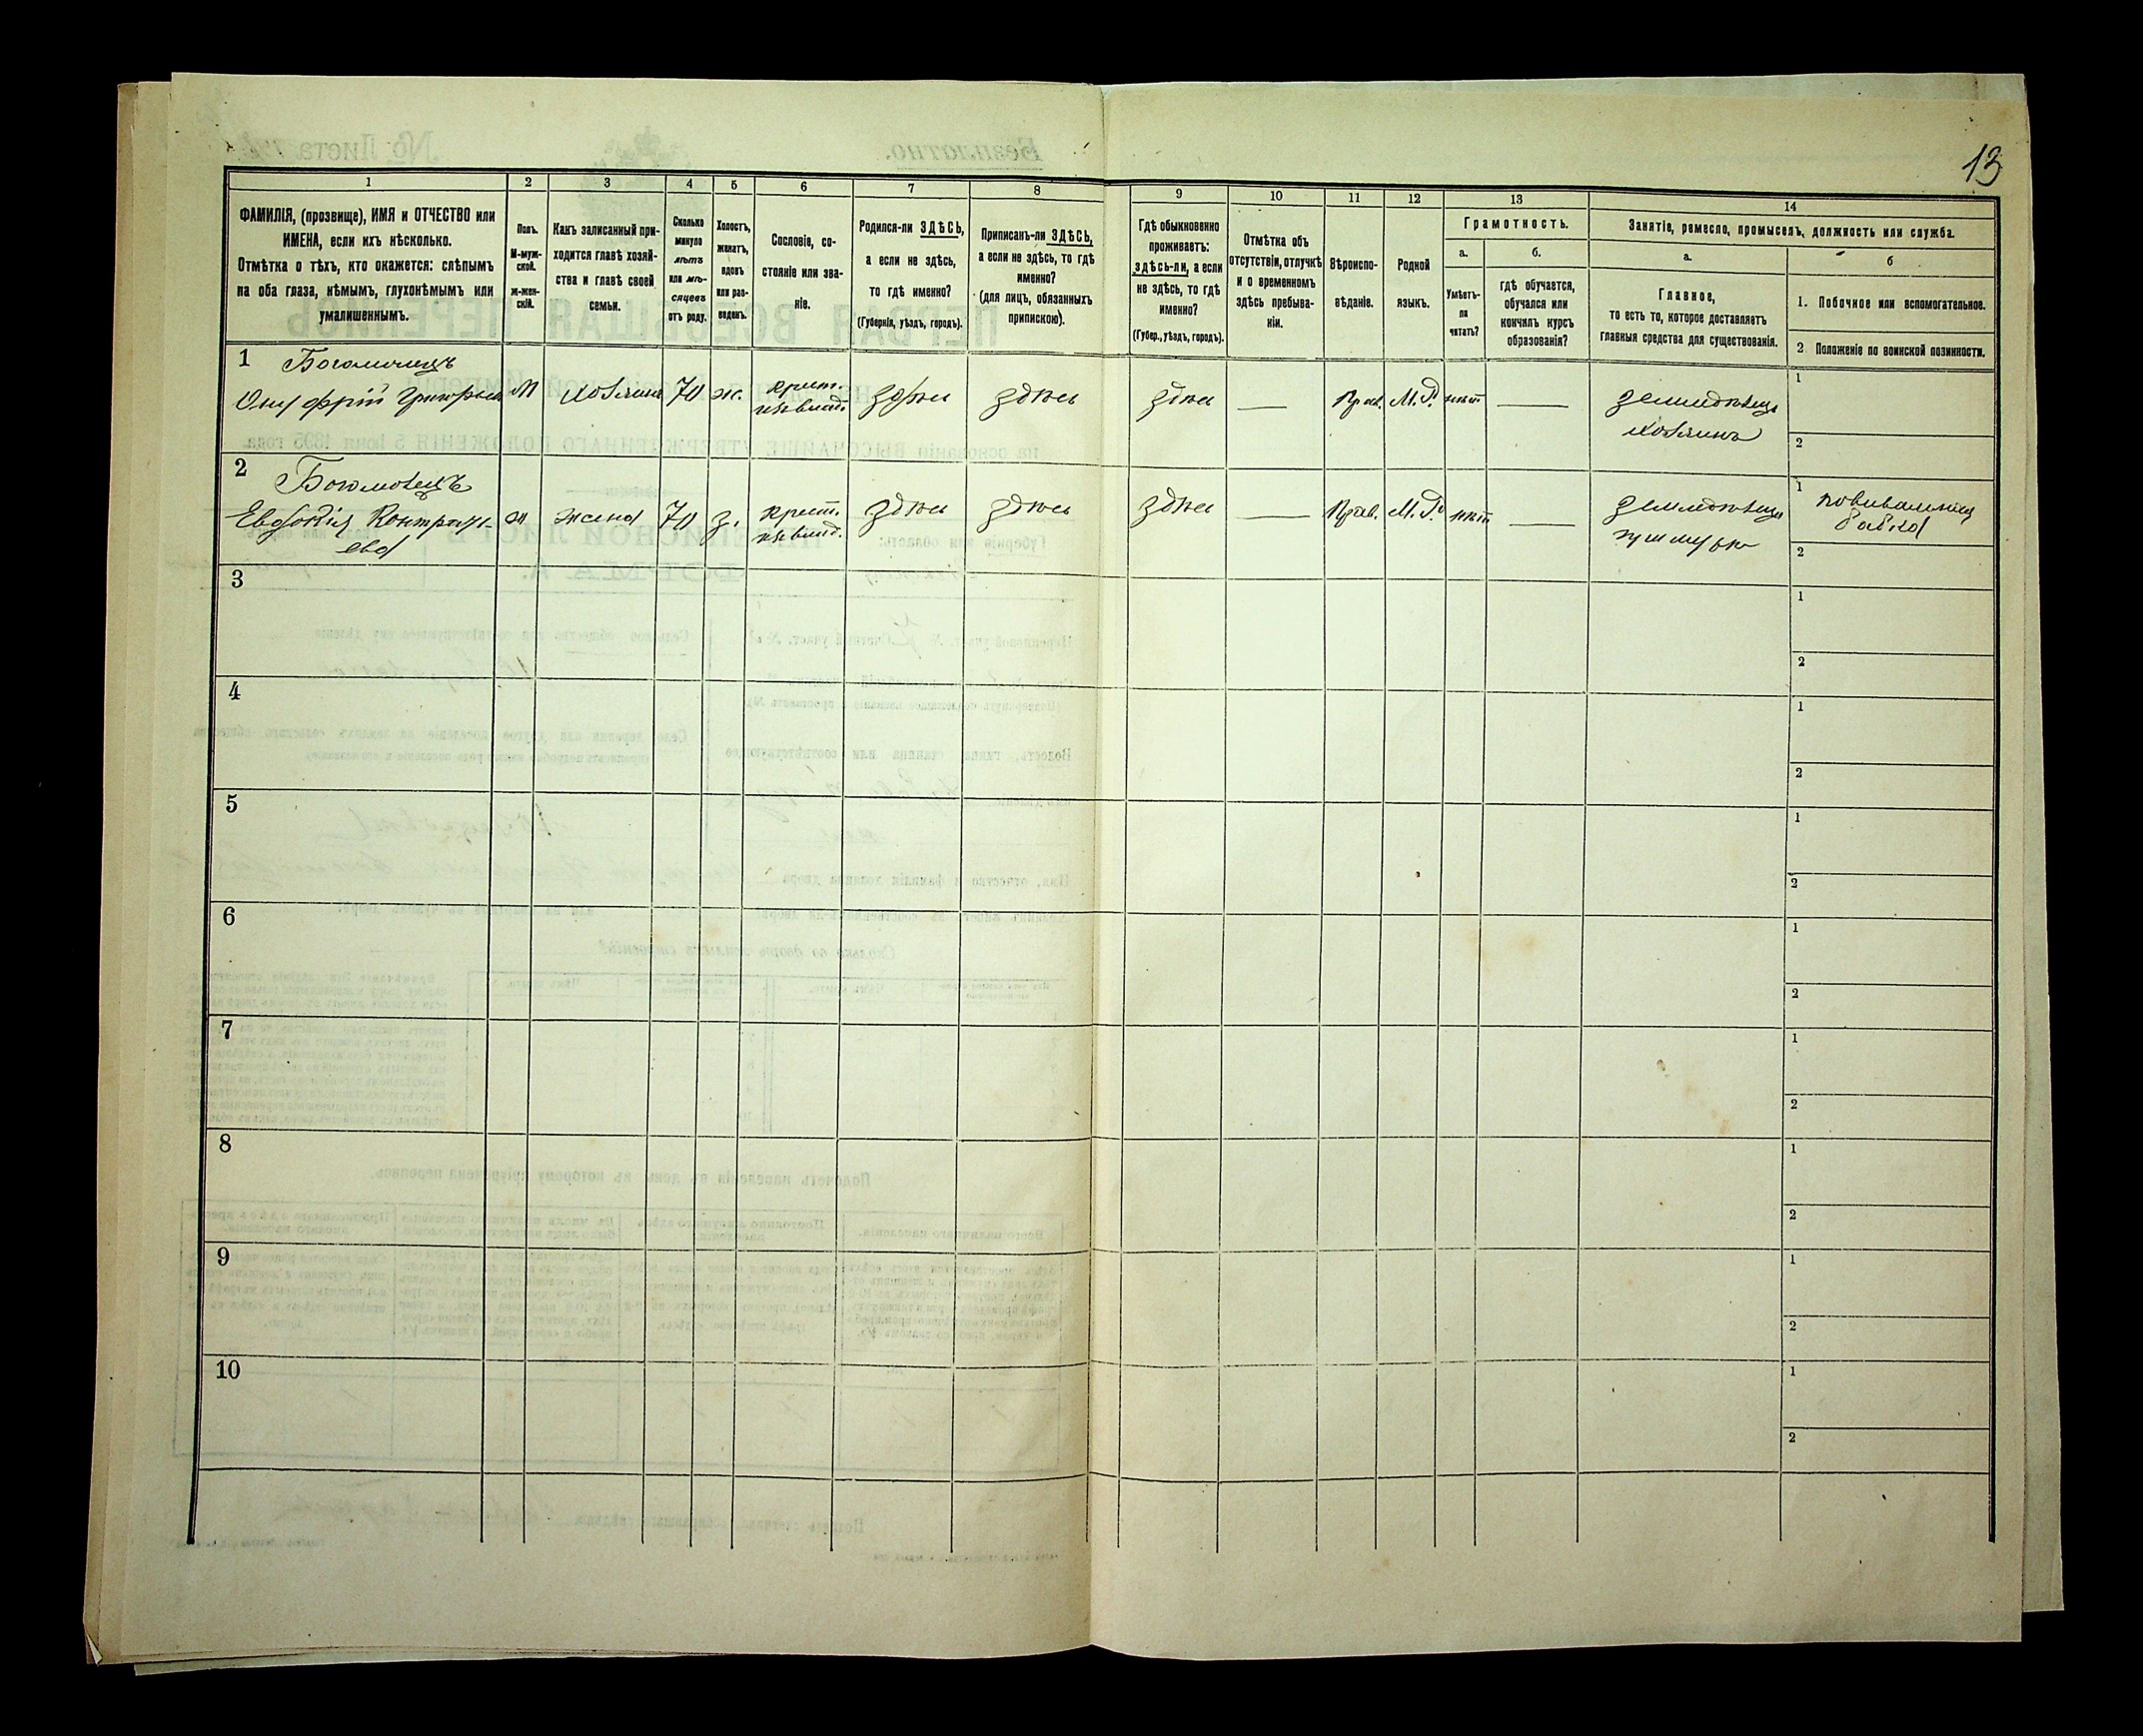 13
1 2 3 4 5 6 7 8 9 10 11 12 13 14
ФАМИЛІЯ, (прозвище), ИМЯ и ОТЧЕСТВО или
ИМЕНА, если ихъ нѣсколько.
Отмѣтка о тѣхъ, кто окажется: слѣпымъ
на оба глаза, нѣмымъ, глухонѣмымъ или
умалишеннымъ.
Полъ.
М-муж-
ской.
ж-жен-
скій.
Какъ записанный при-
ходится главѣ хозяй-
ства и главѣ своей
семьи.
Сколько
минуло
лѣтъ
или мѣ-
сяцевъ
отъ роду.
Холостъ,
женатъ,
вдовъ
или раз-
веденъ.
Сословіе, со-
стояніе или зва-
ніе.
Родился-ли ЗДѢСЬ,
а если не здѣсь,
то гдѣ именно?
(Губернія, уѣздъ, городъ).
Приписанъ-ли ЗДѢСЬ,
а если не здѣсь, то гдѣ
именно?
(для лицъ, обязанныхъ
припискою).
Гдѣ обыкновенно
проживаетъ:
здѣсь-ли, а если
не здѣсь, то гдѣ
именно?
(Губер., уѣздъ, городъ).
Отмѣтка объ
отсутствіи, отлучкѣ
и о временномъ
здѣсь пребыва-
ніи.
Вѣроиспо-
вѣданіе.
Родной
языкъ.
Грамотность.
а.
Умѣетъ-
ли
читать?
б.
гдѣ обучается,
обучался или
кончилъ курсъ
образованія?
Занятіе, ремесло, промыселъ, должность или служба.
а.
Главное,
то есть то, которое доставляетъ
главныя средства для существованія.
б
1. Побочное или вспомогательное.
2. Положеніе по воинской повинности.
1
Онуфрій
М
Хозяинъ
70
ж.
крест.
здѣсь
здѣсь
здѣсь
—
Прав.
М.Р.
нѣтъ
—
хозяинъ
1
2
2
Богомолецъ
Евдокія
ж
жена
70
з.
крест.
здѣсь
здѣсь
здѣсь
—
Прав.
М.Р.
нѣтъ
—
1
повивальная
бабка
2
3
1
2
4
1
2
5
1
2
6
1
2
7
1
2
8
1
2
9
1
2
10
1
2